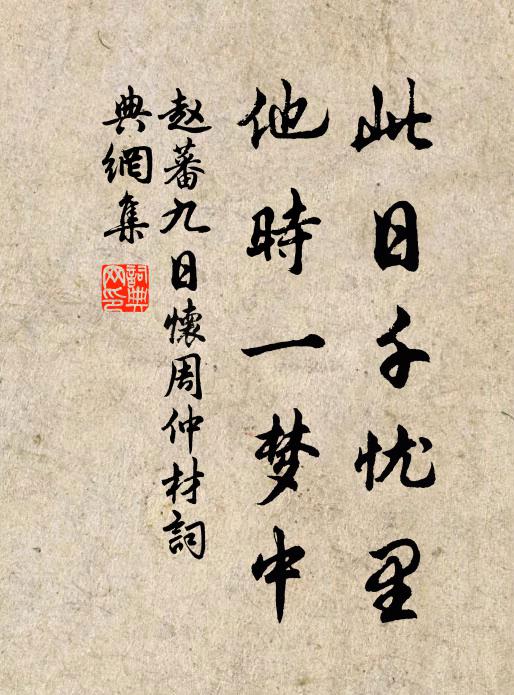 此日千忧里
他時一梦中
赵蕃九日懷周仲材詞
典網集
詞典网印